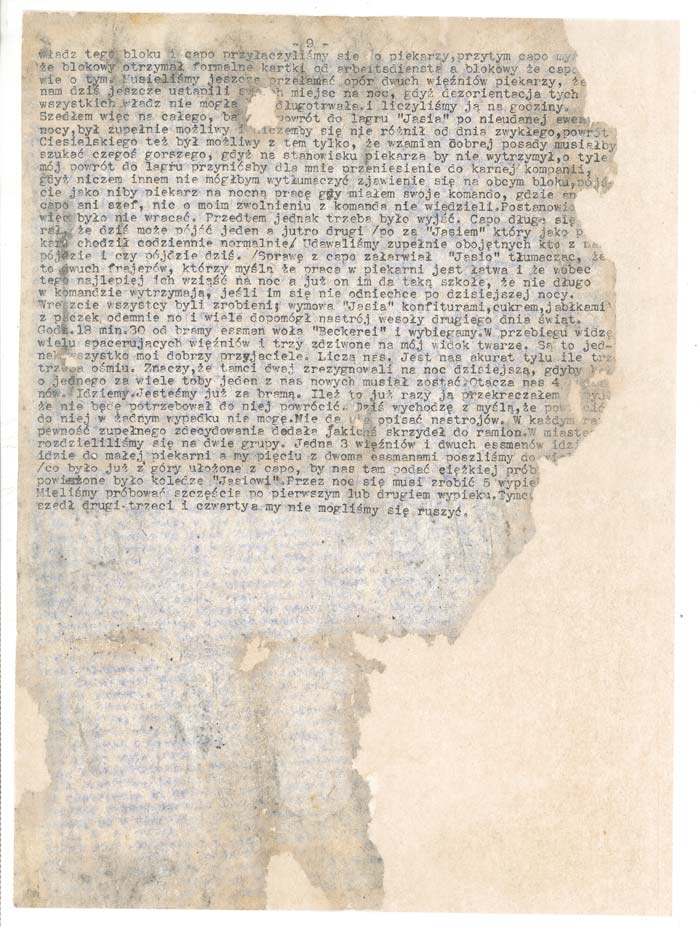 - 9 -
Władz tego bloku i capo przyłączyliśmy się do piekarzy,przytym capo
że blokowy otrzymał formalne kartki od arbeitsdiensta a blokowy że capo
wie o tym. Musieliśmy jeszcze przełamać opór dwuch więźniów piekarzy, że
nam dziś jeszcze ustąpili miejsc na noc, gdyż dezorientacja tych
wszystkich władz nie mogła długotrwała.i liczyliśmy ją na godziny.
Szedłem więc na całego, powrót do lagru "Jasia" po nieudanej
nocy,był zupełnie możliwy i niczemby się nie różnił od dnia zwykłego,powrót
Ciesielskiego też był możliwy z tem tylko, że wzamian dobrej posady musiałby
szukać czegoś gorszego, gdyż na stanowisku piekarza by nie wytrzymył,o tyle
mój powrót do lagru przyniósby dla mnie przeniesienie do karnej kompanii,
gdyż niczem innem nie mógłbym wytłumaczyć zjawienie się na obcym bloku,
cie jako niby piekarz na nocną pracę gdy miałem swoje komando, gdzie
capo ani szef, nic o moim zwolnieniu z komanda nie wiedzieli.Postanowio
więc było nie wracać. Przedtem jednak trzeba było wyjść. Capo długo się
rał, że dziś może pójść jeden a jutro drugi /po za "Jasiem" który jako p
karz chodził codziennie normalnie/ Udawaliśmy zupełnie obojętnych kto z
pójdzie i czy pójdzie dziś. /Sprawę z capo załarwiał "Jasio" tłumacząc, że
to dwuch frajerów, którzy myślą że praca w piekarni jest łatwa i że wobec
tego najlepiej ich wziąść na noc a już on im da taką szkołę, że nie długo
w komandzie wytrzymają, jeśli im się nie odniechce po dzisiejszej nocy.
Wreszcie wszystcy byli zrobieni; wymowa "Jasia" konfiturami,cukrem,jabłkami
z paczek odemnie no i wiele dopomógł nastrój wesoły drugiego dnia świąt.
Godz.18 min.30 od bramy essman woła "Beckerei" i wybiegamy.W przebiegu widzę
wielu spacerujących więźniów i trzy zdziwone na mój widok twarze. Są to jed-
nak wszystko moi dobrzy przyjaciele. Liczą nas. Jest nas akurat tylu ile
trzeba ośmiu. Znaczy,że tamci dwaj zrezygnowali na noc dzisiejszą, gdyby
o jednego za wiele toby jeden z nas nowych musiał zostać.Otacza nas 4
nów. Idziemy.Jesteśmy już za bramą. Ileż to już razy ją przekraczałem
że nie będę potrzebował do niej powrócić. Dziś wychodzę z myślą,że
do niej w żadnym wypadku nie mogę.Nie da opisać nastrojów. W każdym
pewność zupełnego zdecydowania dodała jakichś skrzydeł do ramion.W miaste
rozdzieliliśmy się na dwie grupy. Jedna 3 więźniów i dwuch essmanów idzi
idzie do małej piekarni a my pięciu z dwoma essmanami poszliśmy do
/co było już z góry ułożone z capo, by nas tam podać ciężkiej prób
powierzone było koledze "Jasiowi".Przez noc się musi zrobić 5 wypie
Mieliśmy próbować szczęścia po pierwszym lub drugiem wypieku.Tymc
szedł drugi-trzeci i czwarty a my nie mogliśmy się ruszyć.